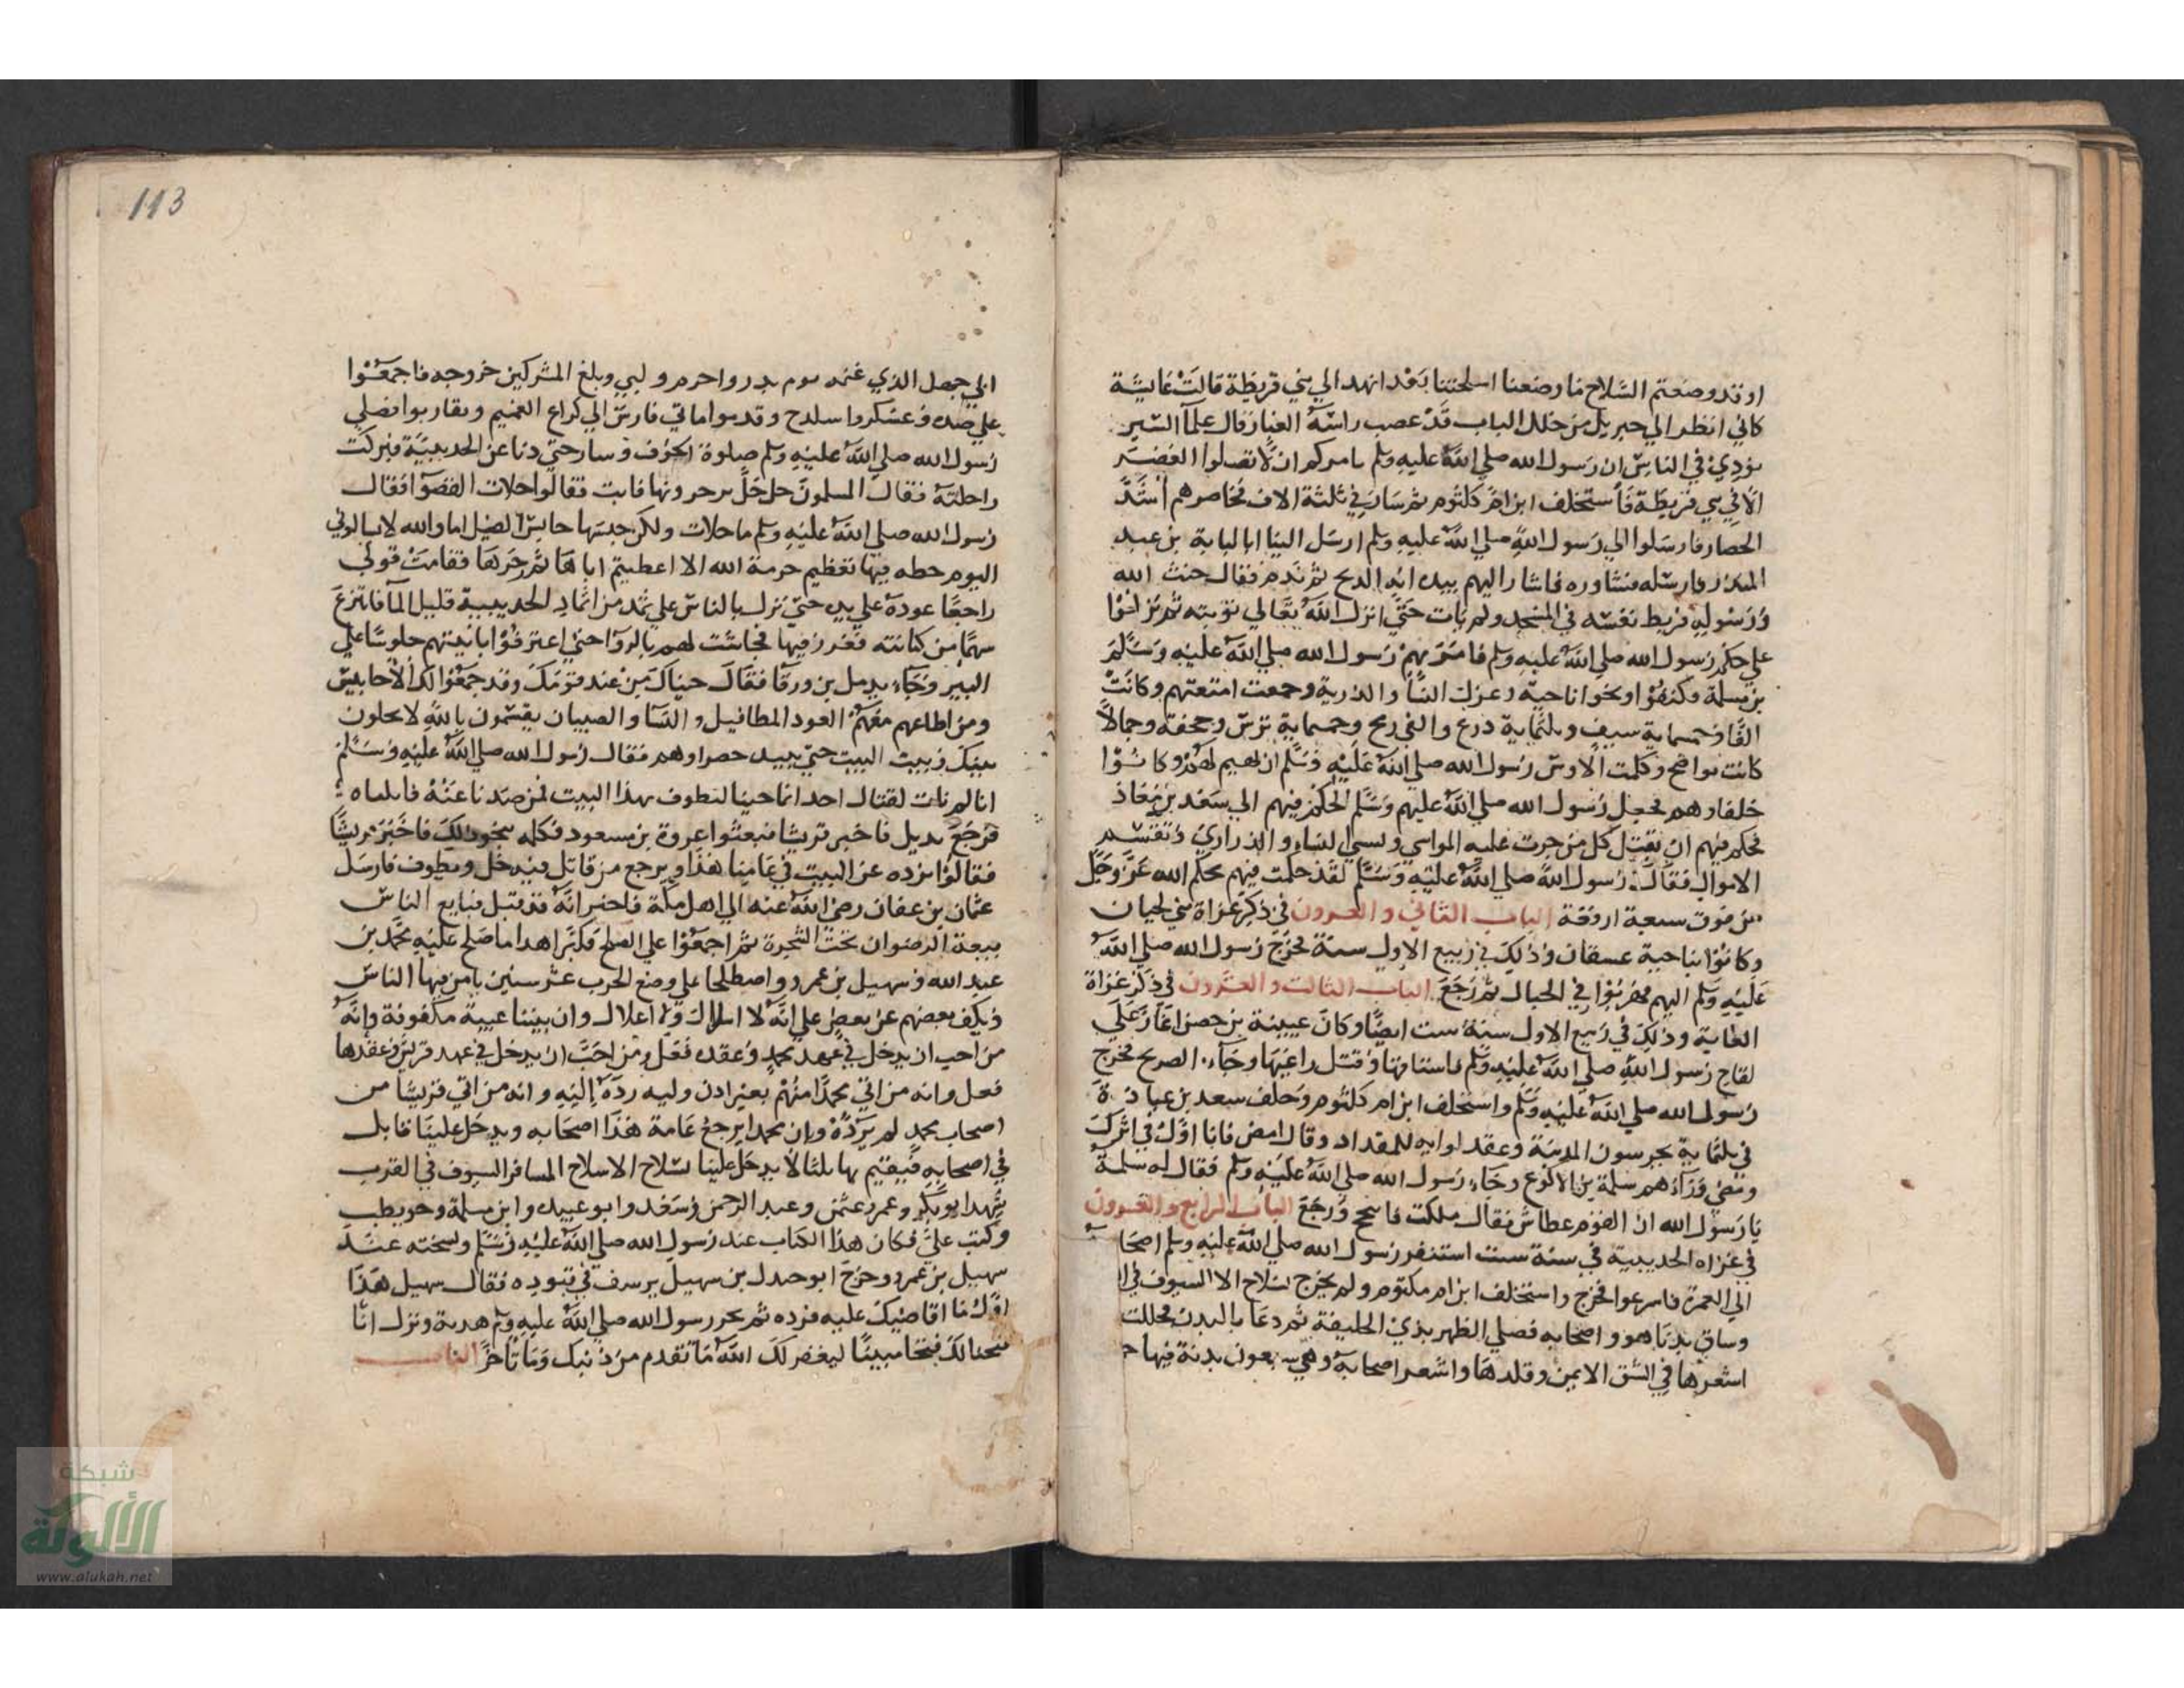 او قد وضعتم السلاح ما وضعنا اسلحتنا بعد انهد الي بني قريظة قالت عايشة
كاني انظر الي جبريل من خلل الباب قد عصب راسه الغبار فنادي
في الناس ان رسول الله صلي الله عليه وسلم يامركم ان لا تصلوا العصر
الا في بني قريظة فاستخلف ابن ام كلثوم ثم سار في ثلثة الاف فحاصرهم اشد
الحصار فارسلوا الي رسول الله صلي الله عليه وسلم ارسل الينا ابا لبابة بن عبد
المنذر فارسله فشاوره فاشار اليهم بيده انه الذبح ثم ندم فقال خنت الله
ورسوله فربط نفسه في المسجد ولم يات حتي انزل الله تعالي توبته ثم نزلوا
علي حكم رسول الله صلي الله عليه وسلم فامر بهم رسول الله صلي الله عليه وسلم
بن مسلمة وكتفوا ونحوا ناحية وعزل النسا والذرية وجمعت امتعتهم وكانت
الفا وخمسماية سيف وثلثماية درع والفي رمح وخمسماية ترس وحجفة وجمالا
كانت نواضح وكلمت الاوس رسول الله صلي الله عليه وسلم ان يهبهم لهم وكانوا
حلفاوهم فجعل رسول الله صلي الله عليهم وسلم الحكم فيهم الي سعد بن معاذ
فحكم فيهم ان يقتل كل من جرت عليه المواسي وتسبي النساء والذراري وتقتسم
الاموال فقال رسول الله صلي الله عليه وسلم لقد حكمت فيهم بحكم الله عز وجل
من فوق سبعة ارقعة الباب الثاني والعشرون في ذكر غزاة بني لحيان
وكانوا بناحية عسفان وذلك في ربيع الاول سنة فخرج رسول الله صلي الله
عليه وسلم اليهم فهربوا في الجبال ثم رجع الباب الثالث والعشرون في ذكر غزاة
الغابة وذلك في ربيع الاول سنة ست ايضا وكان عيينة بن حصن اغار علي
لقاح رسول الله صلي الله عليه وسلم فاستاقها وقتل راعيها وجاء الصريح فخرج
رسول الله صلي الله عليه وسلم واستخلف ابن ام كلثوم وخلف سعد بن عبادة
في ثلثماية يحرسون المدينة وعقد لوايه للمقداد وقال امض فانا اول في اثرك
ومضي وراءهم سلمة بن الاكوع وجاء رسول الله صلي الله عليه وسلم فقال له سلمة
يا رسول الله ان القوم عطاش فقال ملكت فاسجح ورجع الباب الرابع والعشرون
في غزاه الحديبية في سنة ست استنفر رسول الله صلي الله عليه وسلم اصحابه
الي العمرة فاسرعوا فخرج واستخلف ابن ام مكتوم ولم يخرج بسلاح الا السيوف في
وساق بدنا هو واصحابه فصلي الظهر بذي الحليفة ثم دعا بالبدن فجللت
اشعرها في الشق الايمن وقلدها واشعر اصحابه وهي سبعون بدنة فيها ج
113
ابي جهل الذي غنمه يوم بدر واحرم ولبي وبلغ المشركين خروجه فاجمعوا
علي صده وعسكروا ببلدح وقدموا مائتي فارس الي كراع الغميم وتقاربوا فصلي
رسول الله صلي الله عليه وسلم صلوة الخوف وسار حتي دنا عن الحديبية فبركت
راحلته فقال المسلمون حل حل يزجرونها فابت فقالوا خلات القصوا فقال
رسول الله صلي الله عليه وسلم ما خلات ولكن حبسها حابس الفيل اما والله لا يسالوني
اليوم خطه فيها تعظيم حرمة الله الا اعطيتم اياها ثم زجرها فقامت فولي
راجعا عوده علي بديه حتي نزل بالناس علي ثمد من اثماد الحديبية قليل الما فانتزع
سهما من كنانته فغرز فيها فجاشت لهم بالروا حتي اغترفوا بانيتهم جلوسا علي
البير وجاء بديل بن ورقا فقال جيناك من عند قومك وقد جمعوا لك الاحابيش
ومن اطاعهم معهم العوذ المطافيل والنسا والصبيان يقسمون بالله لا يخلون
بينك وبيت البيت حتي تبيد خضراوهم فقال رسول الله صلي الله عليه وسلم
انا لم نات لقتال احد انما جينا لنطوف بهذا البيت فمن صدنا عنه قاتلناه
فرجع بديل فاخبر قريشا فبعثوا عروة بن مسعود فكلمه بنحو ذلك فاخبر قريشا
فقالوا نرده عن البيت في عامنا هذا ويرجع من قابل فيدخل ويطوف فارسل
عثمان بن عفان رضي الله عنه الي اهل مكة فاخبر انه قد قتل فبايع الناس
بيعة الرضوان تحت الشجرة ثم اجمعوا علي الصلح فكتبوا هذا ما صالح عليه محمد بن
عبد الله وسهيل بن عمرو واصطلحا علي وضع الحرب عشر سنين يامن فيها الناس
ويكف بعضهم عن بعض علي انه لا اسلال ولا اغلال وان بيننا عيبة مكفوفة وانه
من احب ان يدخل في عهد محمد وعقده فعل ومن احب ان يدخل في عهد قريش وعقدها
فعل وانه من اتي محمدا منهم بغير اذن وليه رده اليه وانه من اتي قريشا من
اصحاب محمد لم يردوه وان محمدا يرجع عامه هذا اصحابه ويدخل علينا قابل
في اصحابه فيقيم بها ثلثا لا يدخل علينا بسلاح الا سلاح المسافر السيوف في القرب
شهد ابو بكر وعمر وعثمن وعبد الرحمن وسعد وابو عبيده وابن مسلمة وحويطب
وكتب علي فكان هذا الكتاب عند رسول الله صلي الله عليه وسلم ونسخته عند
سهيل بن عمرو وخرج ابو جندل بن سهيل يرسف في قيوده فقال سهيل هذا
اول ما اقاضيك عليه فرده ثم نحر رسول الله صلي الله عليه وسلم هديه ونزل انا
فتحنا لك فتحا مبينا ليغفر لك الله ما تقدم من ذنبك وما تاخر الباب
شبكة
الألوكة
www.alukah.net